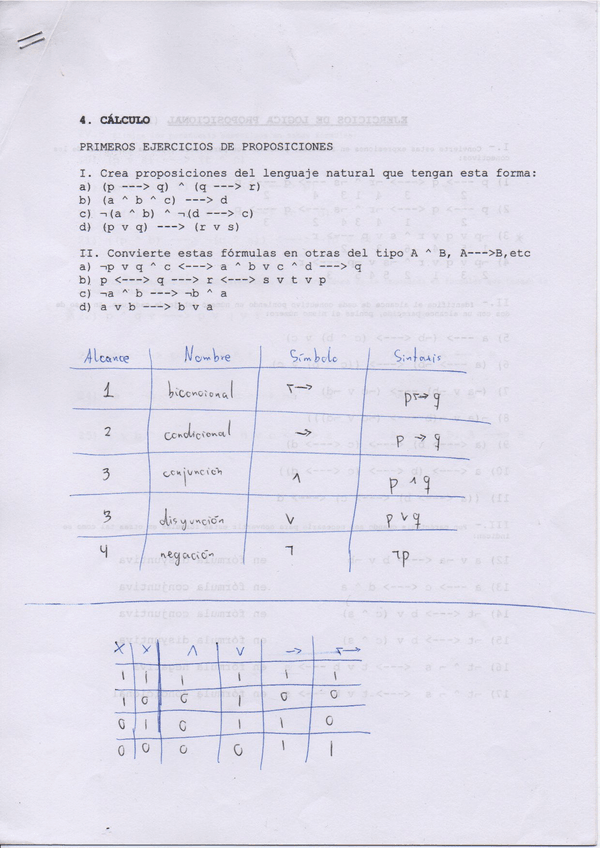 4. CÁLCULO
PRIMEROS EJERCICIOS DE PROPOSICIONES
I. Crea proposiciones del lenguaje natural que tengan esta forma:
a) (p ---> q) ^ (q ---> r)
b) (a ^ b ^ c) ---> d
c) ¬(a ^ b) ^ ¬(d ---> c)
d) (p v q) ---> (r v s)
II. Convierte estas fórmulas en otras del tipo A ^ B, A--->B,etc
a) ¬p v q ^ c <---> a ^ b v c ^ d ---> q
b) p <---> q ---> r <---> s v t v p
c) ¬a ^ b ---> ¬b ^ a
d) a v b ---> b v a
Alcance Nombre Símbolo Sintaxis
1 bicondional ↔ p↔q
2 condicional → p → q
3 conjunción ∧ p ∧ q
3 disyunción v p v q
4 negación ¬ ¬p
X X ∧ v → ↔
1 1 1 1 1 1
1 0 0 1 0 0
0 1 0 1 1 0
0 0 0 0 1 1